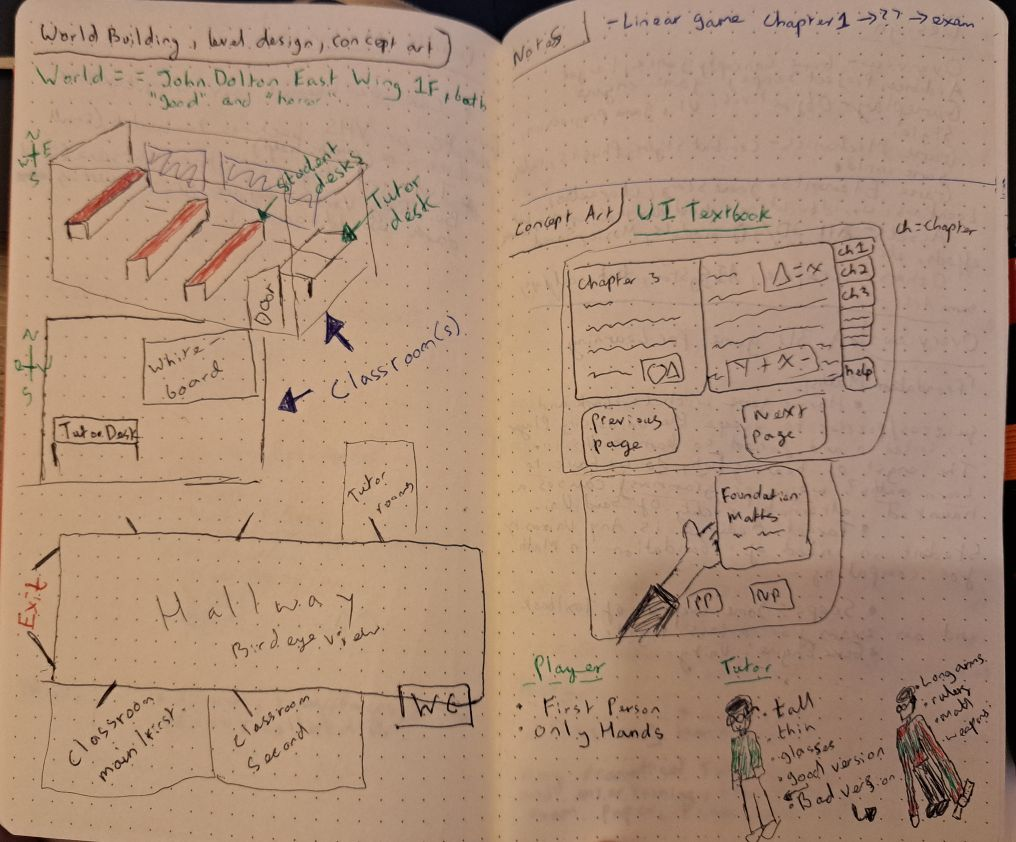 World Building, level design, concept art
World == John Dolton East Wing 1F, both
"good" and "horror"
N
W E
S
Student
desks
Tutor
desk
Door
Classroom(s)
N
S
White-
board
Tutor Desk
Tutor
rooms
Exit
Hallway
Birdeye view
WC
Classroom
main/first
Classroom
Second
Notes
- Linear game Chapter 1 → ?? → exam
Concept Art
UI Textbook
ch = chapter
Chapter 3
Δ = x
Y + x -
ch1
ch2
ch3
help
previous
page
Next
page
Foundation
Maths
PP
NP
Player
• First Person
• Only Hands
Tutor
• tall
• thin
• glasses
• good version
• Bad version
• Long arms
• rulers
• math
weapons